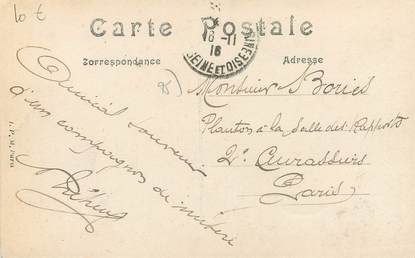 10 €
Carte Postale
Correspondance
Adresse
16-11
16
SEINE ET OISE
Amical souvenir
d'un compagnon de misère
Monsieur Bories
Planton à la Salle des Rapports
2e Cuirassiers
Paris